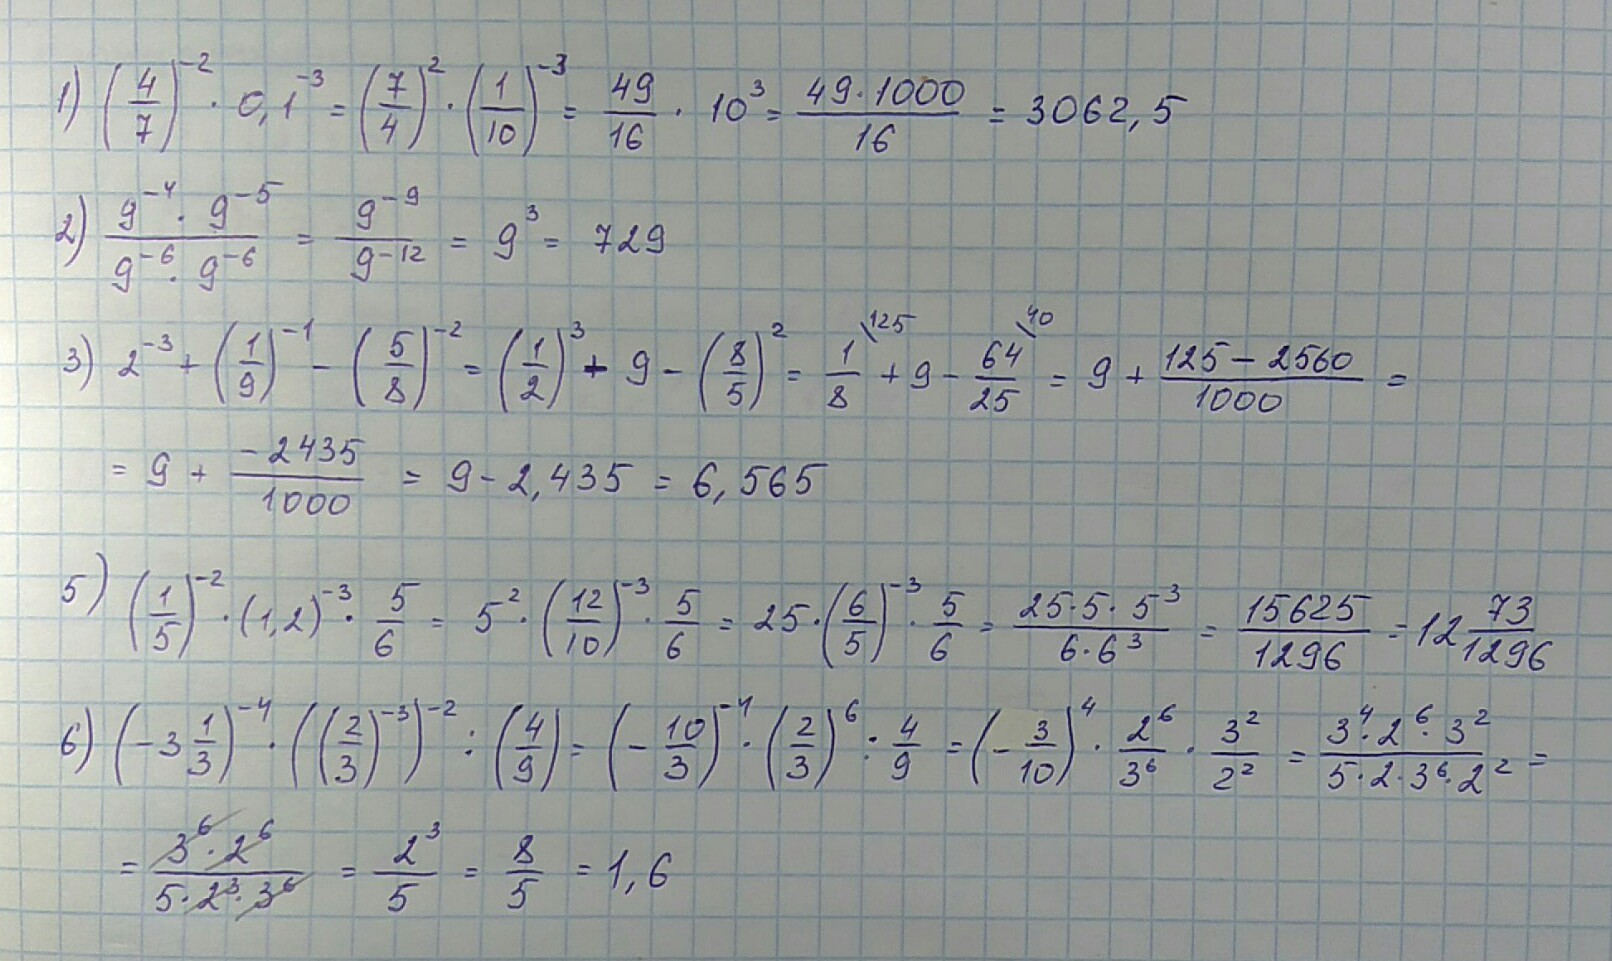 1) (4/7)^-2 · 0,1^-3 = (7/4)^2 · (1/10)^-3 = 49/16 · 10^3 = 49·1000/16 = 3062,5
2) 9^-4 · 9^-5 / 9^-6 · 9^-6 = 9^-9 / 9^-12 = 9^3 = 729
3) 2^-3 + (1/9)^-1 - (5/8)^-2 = (1/2)^3 + 9 - (8/5)^2 = 1/8 \125 + 9 - 64/25 \40 = 9 + 125-2560/1000 =
= 9 + -2435/1000 = 9 - 2,435 = 6,565
5) (1/5)^-2 · (1,2)^-3 · 5/6 = 5^2 · (12/10)^-3 · 5/6 = 25 · (6/5)^-3 · 5/6 = 25·5·5^3 / 6·6^3 = 15625/1296 = 12 73/1296
6) (-3 1/3)^-4 · ((2/3)^-3)^-2 : (4/9) = (-10/3)^-4 · (2/3)^6 : 4/9 = (-3/10)^4 · 2^6/3^6 · 3^2/2^2 = 3^4·2^6·3^2 / 5·2·3^6·2^2 =
= 3^6·2^6 / 5·2^3·3^6 = 2^3/5 = 8/5 = 1,6